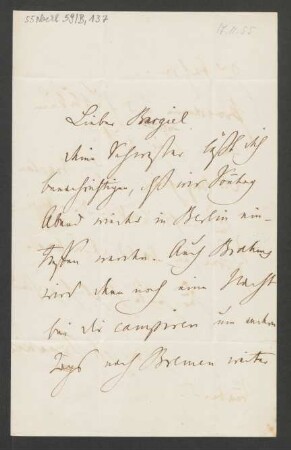 55 Nachl 59/B, 137
17.11.55
Lieber Bargiel
Deine Schwester läßt dich
benachrichtigen, daß wir Sonntag
Abend wieder in Berlin ein-
treffen werden. Auch Brahms
wird dann noch eine Nacht
bei dir campiren um andern
Tags nach Bremen weiter